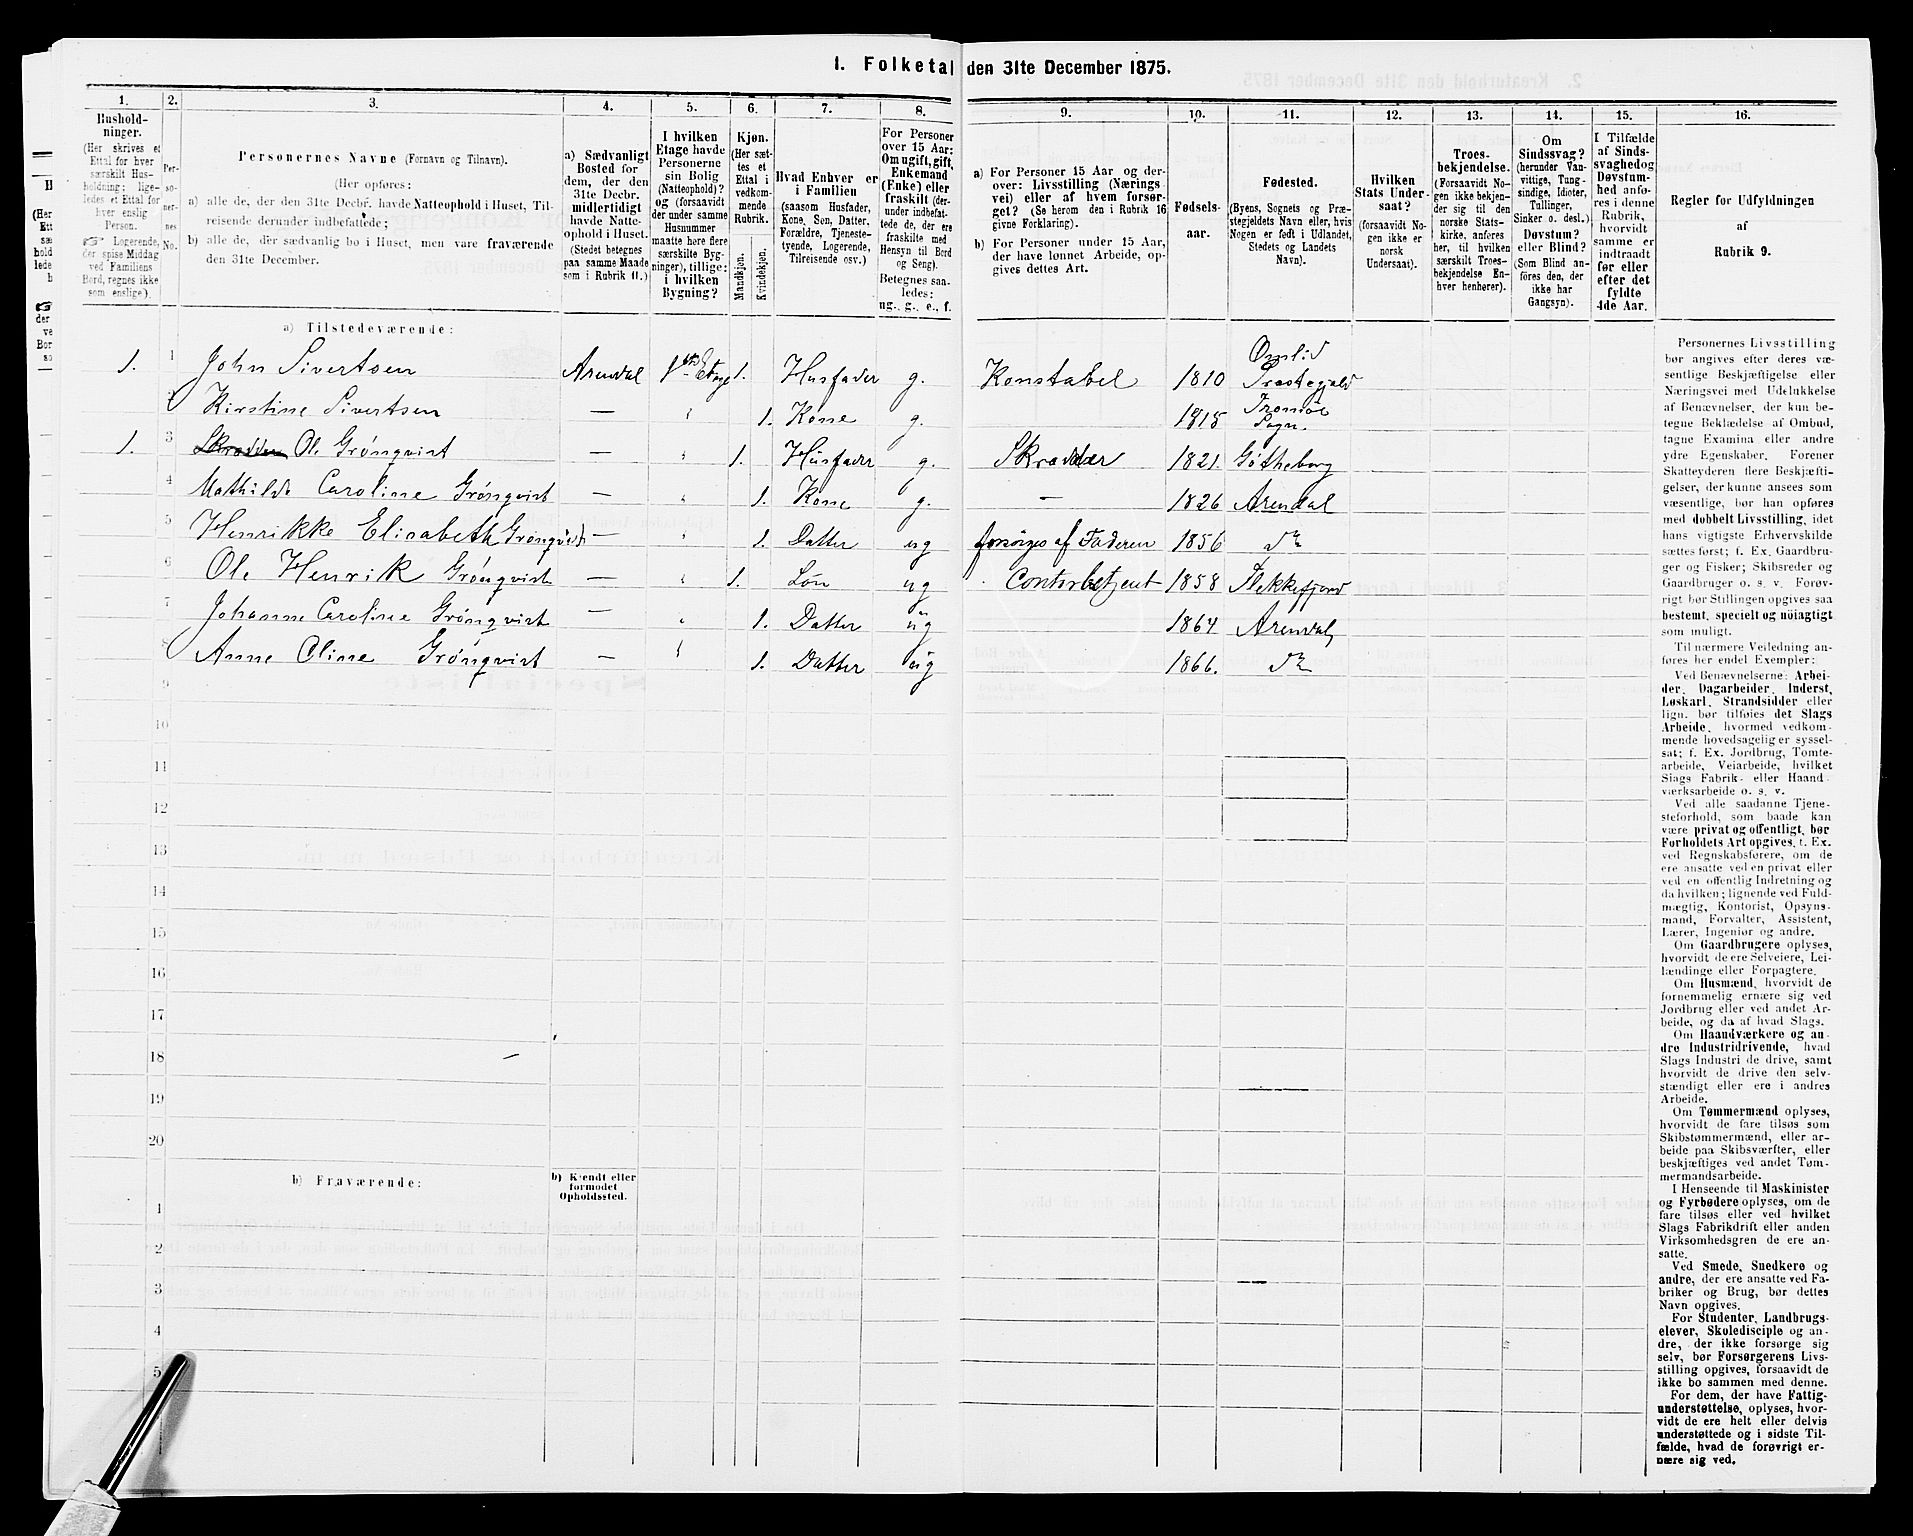 1. Folketal den 31te December 1875.
1.
2.
3.
4.
5.
6.
7.
8.
9.
10.
11.
12.
13.
14.
15.
16.
Hushold-
ninger.
(Her skrives et
Ettal for hver
særskilt Hus-
holdning; lige-
ledes et Ettal for
hver enslig
Person.
☞ Logerende,
der spise Middag
ved Familiens
Bord, regnes ikke
som enslige).
Per-
so-
ner-
nes
No.
Personernes Navne (Fornavn og Tilnavn).
(Her opføres:
a) alle de, der den 31te Decbr. havde Natteophold i Huset, Til-
reisende derunder indbefattede;
b) alle de, der sædvanlig bo i Huset, men vare fraværende
den 31te December.
a) Sædvanligt
Bosted for
dem, der den
31te Decbr.
midlertidigt
havde Natte-
ophold i Huset.
(Stedet betegnes
paa samme Maade
som i Rubrik 11.)
I hvilken
Etage havde
Personerne
sin Bolig
(Natteophold)?
og (forsaavidt
der under samme
Husnummer
maatte høre flere
særskilte Byg-
ninger), tillige:
i hvilken
Bygning?
Kjøn.
(Her sæt-
tes et
Ettal i
vedkom-
mende
Rubrik.
Mandkjøn.
Kvindekjøn.
Hvad Enhver er
i Familien
(saasom Husfader,
Kone, Søn, Datter,
Forældre, Tjeneste-
tyende, Logerende,
Tilreisende osv.)
For Personer
over 15 Aar:
Om ugift, gift,
Enkemand
(Enke) eller
fraskilt (der-
under indbefat-
tede de, der ere
fraskilte med
Hensyn til Bord
og Seng).
Betegnes saa-
ledes:
ug., g., e., f.
a) For Personer 15 Aar og der-
over: Livsstilling (Nærings-
vei) eller af hvem forsør-
get? (Se herom den i Rubrik 16
givne Forklaring).
b) For Personer under 15 Aar,
der have lønnet Arbeide, op-
gives dettes Art.
Fødsels-
aar.
Fødested.
(Byens, Sognets og Præ-
stegjeldets Navn eller, hvis
Nogen er født i Udlandet,
Stedets og Landets
Navn).
Hvilken
Stats Under-
saat?
(forsaavidt No-
gen ikke er
norsk
Undersaat).
Troes-
bekjendelse.
(Forsaavidt No-
gen ikke bekjen-
der sig til den
norske Stats-
kirke, anføres
her, til hvilken
særskilt Troes-
bekjendelse En-
hver henhører).
Om
Sindssvag?
(herunder Van-
vittige, Tung-
sindige, Idioter,
Tullinger,
Sinker o. desl.)
Døvstum?
eller Blind?
(Som Blind an-
føres den, der
ikke har
Gangsyn).
I Tilfælde
af Sinds-
svaghed og
Døvstum-
hed anfø-
res i denne
Rubrik,
hvorvidt
samme er
indtraadt
før eller
efter det
fyldte
4de Aar.
Regler for Udfyldningen
af
Rubrik 9.
a) Tilstedeværende:
1. 1 John Sivertsen Arendal 1ste Etage 1. Husfader g. Konstabel 1810 Omlid Præstegjeld
2 Kirstine Sivertsen — " 1. Kone g. 1815 Tromöe Sogn.
1. 3 Skrædder Ole Grónqvist — " 1. Husfader g. Skrædder 1821. Götheborg
4 Mathilde Caroline Grónqvist — " 1. Kone g. — 1826 Arendal
5 Henrikke Elisabeth Grónqvist — " 1. Datter ug forsörges af Faderen 1856 do
6 Ole Henrik Grónqvist — " 1. Sön ug Contorbetjent 1858 Flekkefjord
7 Johanne Caroline Grónqvist — " 1. Datter ug 1864 Arendal,
8 Anne Oline Grónqvist — " 1. Datter ug 1866. do
9
10
11
12
13
14
15
16
18
19
20
b) Fraværende:
b) Kjendt eller
formodet
Opholdssted.
1
2
3
4
5
Personernes Livsstilling
bør angives efter deres væ-
sentlige Beskjæftigelse eller
Næringsvei med Udelukkelse
af Benævnelser, der kun be-
tegne Beklædelse af Ombud,
tagne Examina eller andre
ydre Egenskaber. Forener
Skatteyderen flere Beskjæfti-
gelser, der kunne ansees som
væsentlige, bør han opføres
med dobbelt Livsstilling, idet
hans vigtigste Erhvervskilde
sættes først; f. Ex. Gaardbru-
ger og Fisker; Skibsreder og
Gaardbruger o. s. v. Forøv-
rigt bør Stillingen opgives saa
bestemt, specielt og nøiagtigt
som muligt.
Til nærmere Veiledning an-
føres her endel Exempler:
Ved Benævnelserne: Arbei-
der, Dagarbeider, Inderst,
Løskarl, Strandsidder eller
lign. bør tilføies det Slags
Arbeide, hvormed vedkom-
mende hovedsagelig er syssel-
sat; f. Ex. Jordbrug, Tomte-
arbeide, Veiarbeide, hvilket
Slags Fabrik- eller Haand-
værksarbeide o. s. v.
Ved alle saadanne Tjene-
steforhold, som baade kan
være privat og offentligt, bør
Forholdets Art opgives, t. Ex.
ved Regnskabsførere, om de
ere ansatte ved en privat eller
ved en offentlig Indretning og
da hvilken; lignende ved Fuld-
mægtig, Kontorist, Opsyns-
mand, Forvalter, Assistent,
Lærer, Ingeniør og andre.
Om Gaardbrugere oplyses,
hvorvidt de ere Selveiere, Lei-
lændinge eller Forpagtere.
Om Husmænd, hvorvidt de
fornemmelig ernære sig ved
Jordbrug eller ved andet Ar-
beide, og da af hvad Slags.
Om Haandværkere og an-
dre Industridrivende, hvad
Slags Industri de drive, samt
hvorvidt de drive den selv-
stændigt eller ere i andres
Arbeide.
Om Tømmermænd oplyses,
hvorvidt de fare tilsøs som
Skibstømmermænd, eller ar-
beide paa Skibsværfter, eller
beskjæftiges ved andet Tøm-
mermandsarbeide.
I Henseende til Maskinister
og Fyrbødere oplyses, om de
fare tilsøs eller ved hvilket
Slags Fabrikdrift eller anden
Virksomhedsgren de ere an-
satte.
Ved Smede, Snedkere og
andre, der ere ansatte ved Fa-
briker og Brug, bør dettes
Navn opgives.
For Studenter, Landbrugs-
elever, Skoledisciple og an-
dre, der ikke forsørge sig
selv, bør Forsørgerens Livs-
stilling opgives, forsaavidt de
ikke bo sammen med denne.
For dem, der have Fattig-
understøttelse, oplyses, hvor-
vidt de ere helt eller delvis
understøttede og i sidste Til-
fælde, hvad de forøvrigt er-
nære sig ved.